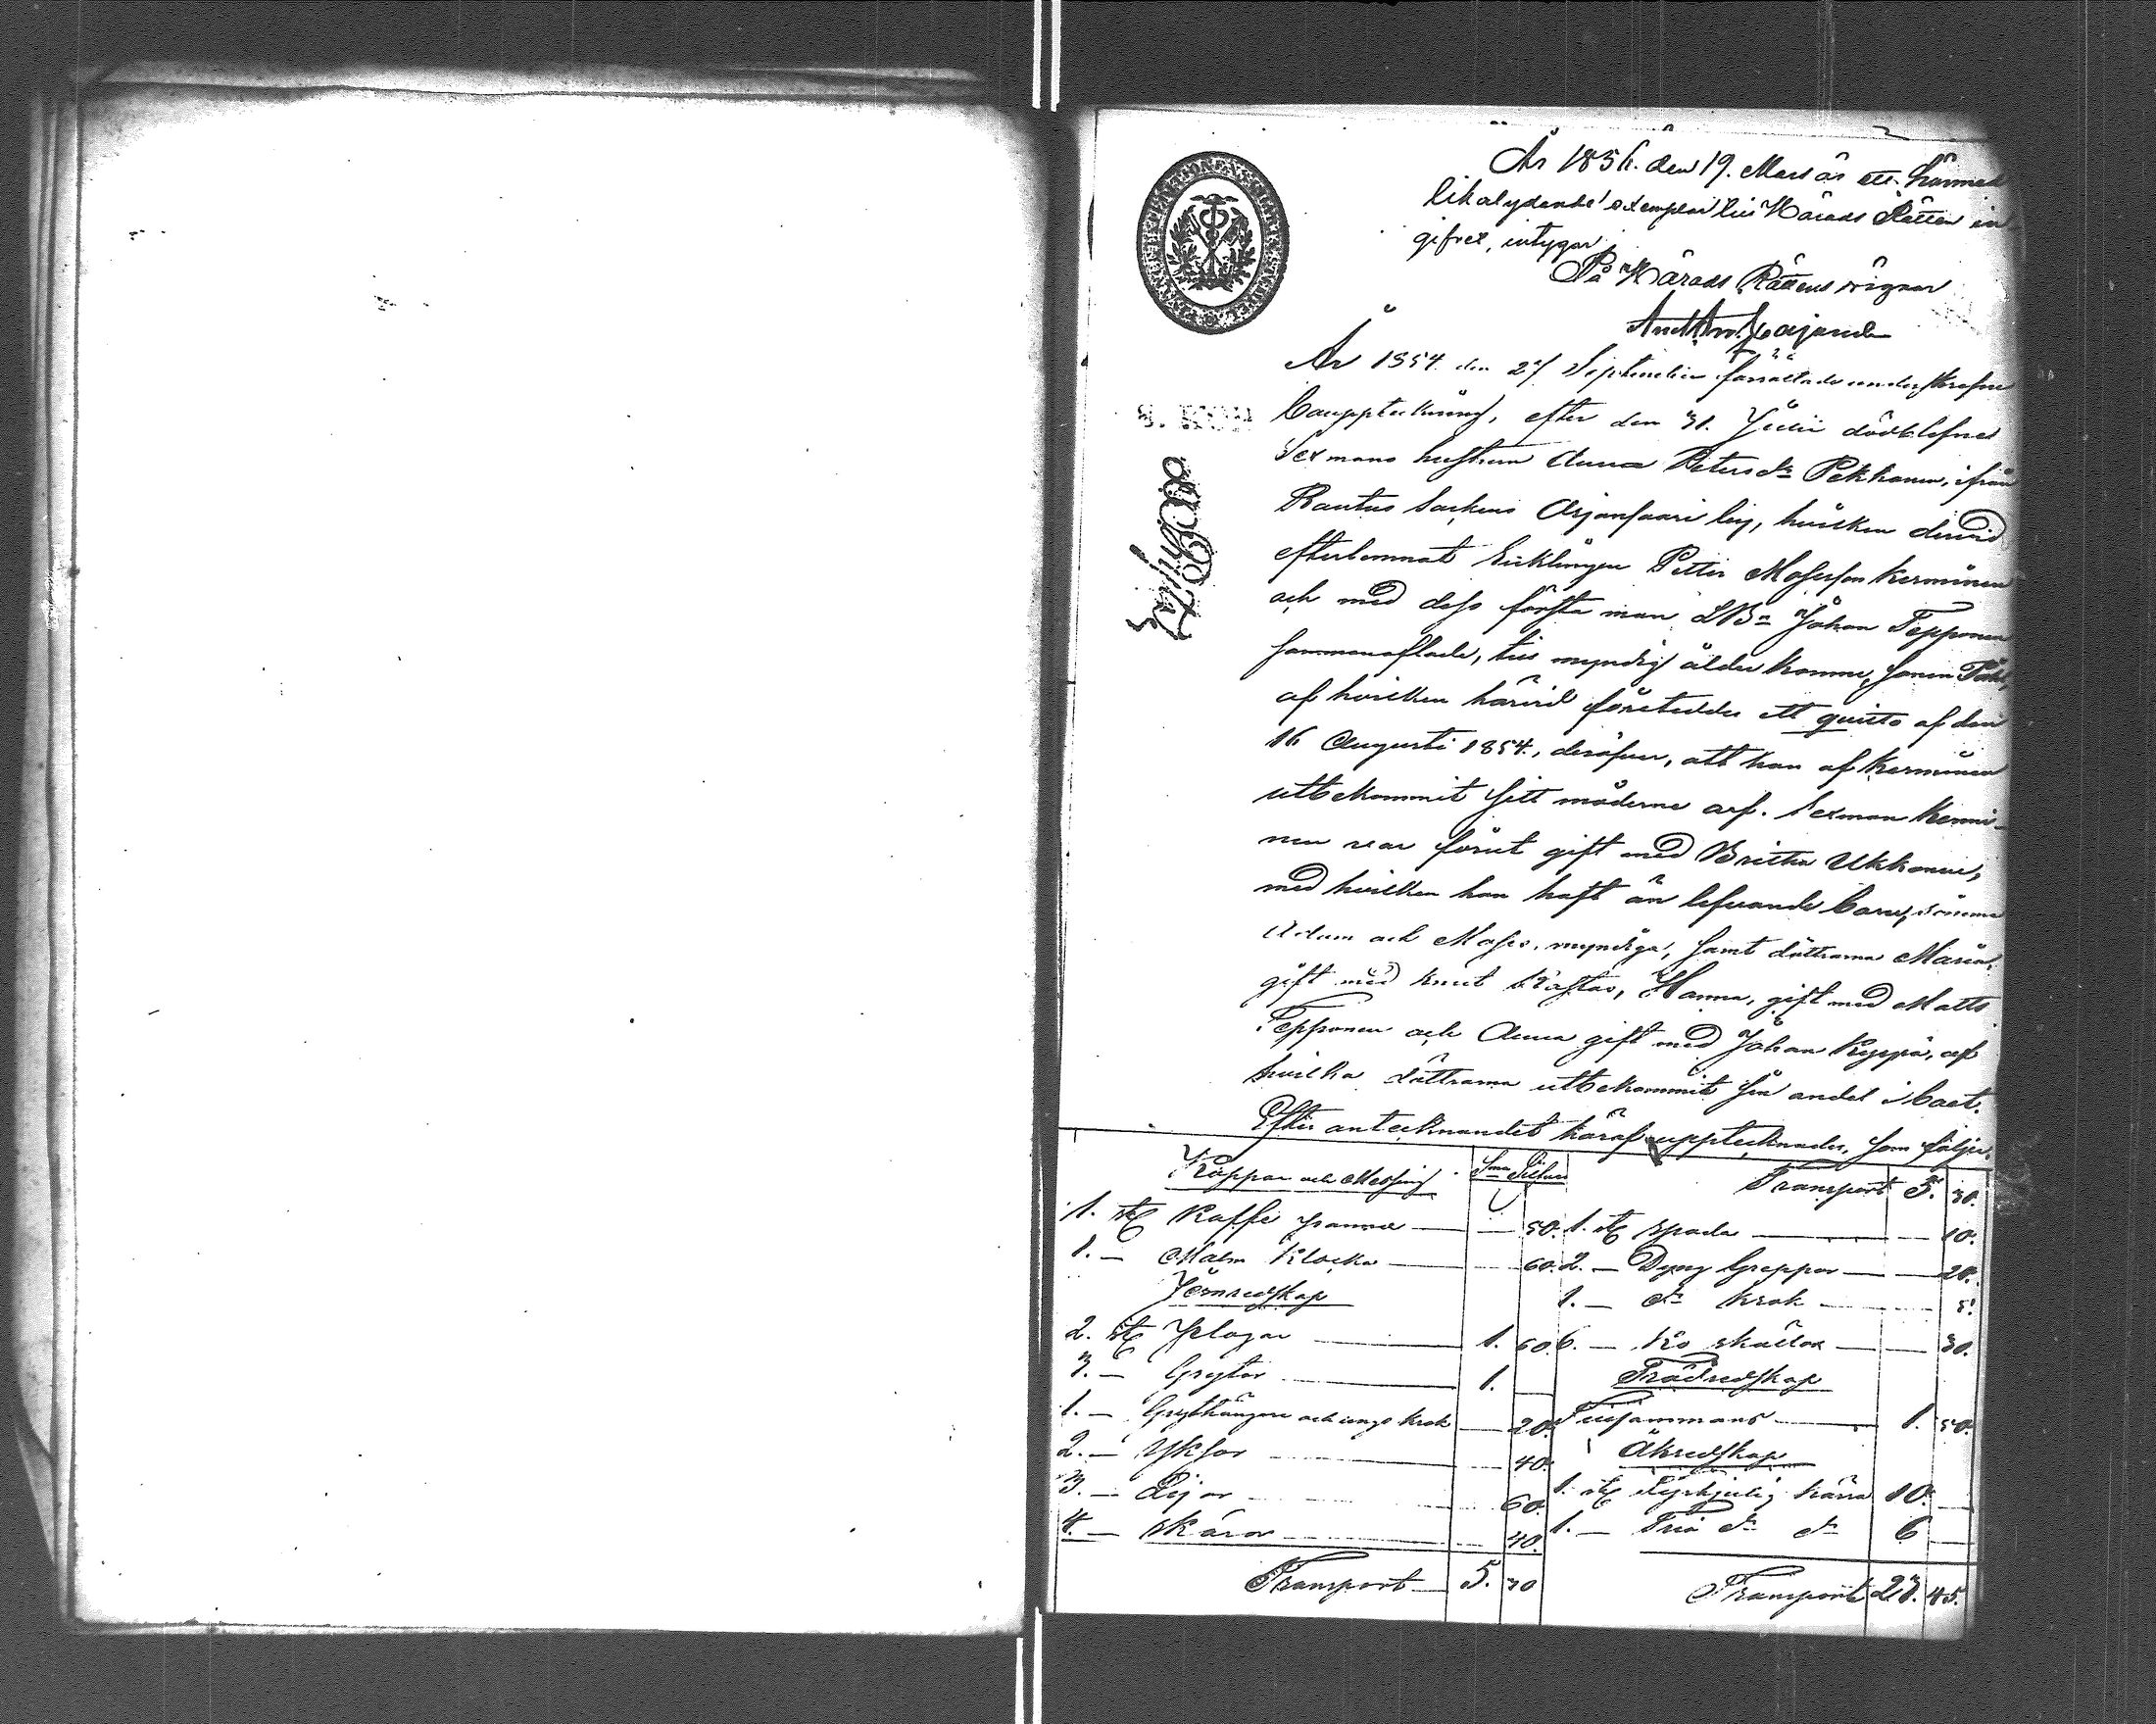 År 1856. den 19. Mars är ett härmed
likalydande exemplar till Härads Rätten in
gifvet, intygar
På Härads Rättens vägnar
År 1854. den 27 September förrättade underskrefne
bouppteckning, efter den 31. Julii dödblefne
Sexmans hustrun Anna Petersdr Pekkanen, ifrån
Rautus Sockens Orjansaari by, hvilken dervid
efterlemnat Enklingen Petter Mosesson Kerminen
och med dess första man Johan Tepponen
sammanaflade, till myndig ålder komne, sonen
af hvilken härvid företeddes ett quitto af den
16 Augusti 1854., deröfver, att han af Kerminen
utbekommit sitt möderne arf. Sexman Kermi-
nen var förut gift med Britha Ukkonen,
med hvilken han haft än lefvande barn, sönerne
Adam och Moses, myndige, samt döttrarna Maria,
gift med Knut, Hanna, gift med Matts
Tepponen och Anna gift med Johan Kyppä, af
hvilka döttrarna utbekommit sin andel i boet.
Efter antecknandet häraf upptecknades, som följer.
Koppar och Messing Silfver
1. st Kaffe panna 50.
1. — Malm klocka 60.
Jernredskap
2. st Plogar 1. 60.
3. — Grytor 1. —
1. — Grythängare och ungs krok 20.
2. — Yxor 40.
3. — Lijor 60.
4. — skäror 40.
Transport 5. 30
Transport 5. 30.
1. st spada 10.
2. — Dyng Greppar 20.
1. — do krok 5.
6. — Ko skällor 30.
Trädredskap
Tillsammans 1. 50.
Åkredskap
1. st kärra 10. —
1. — Trä do do 6 —
Transport 23. 45.